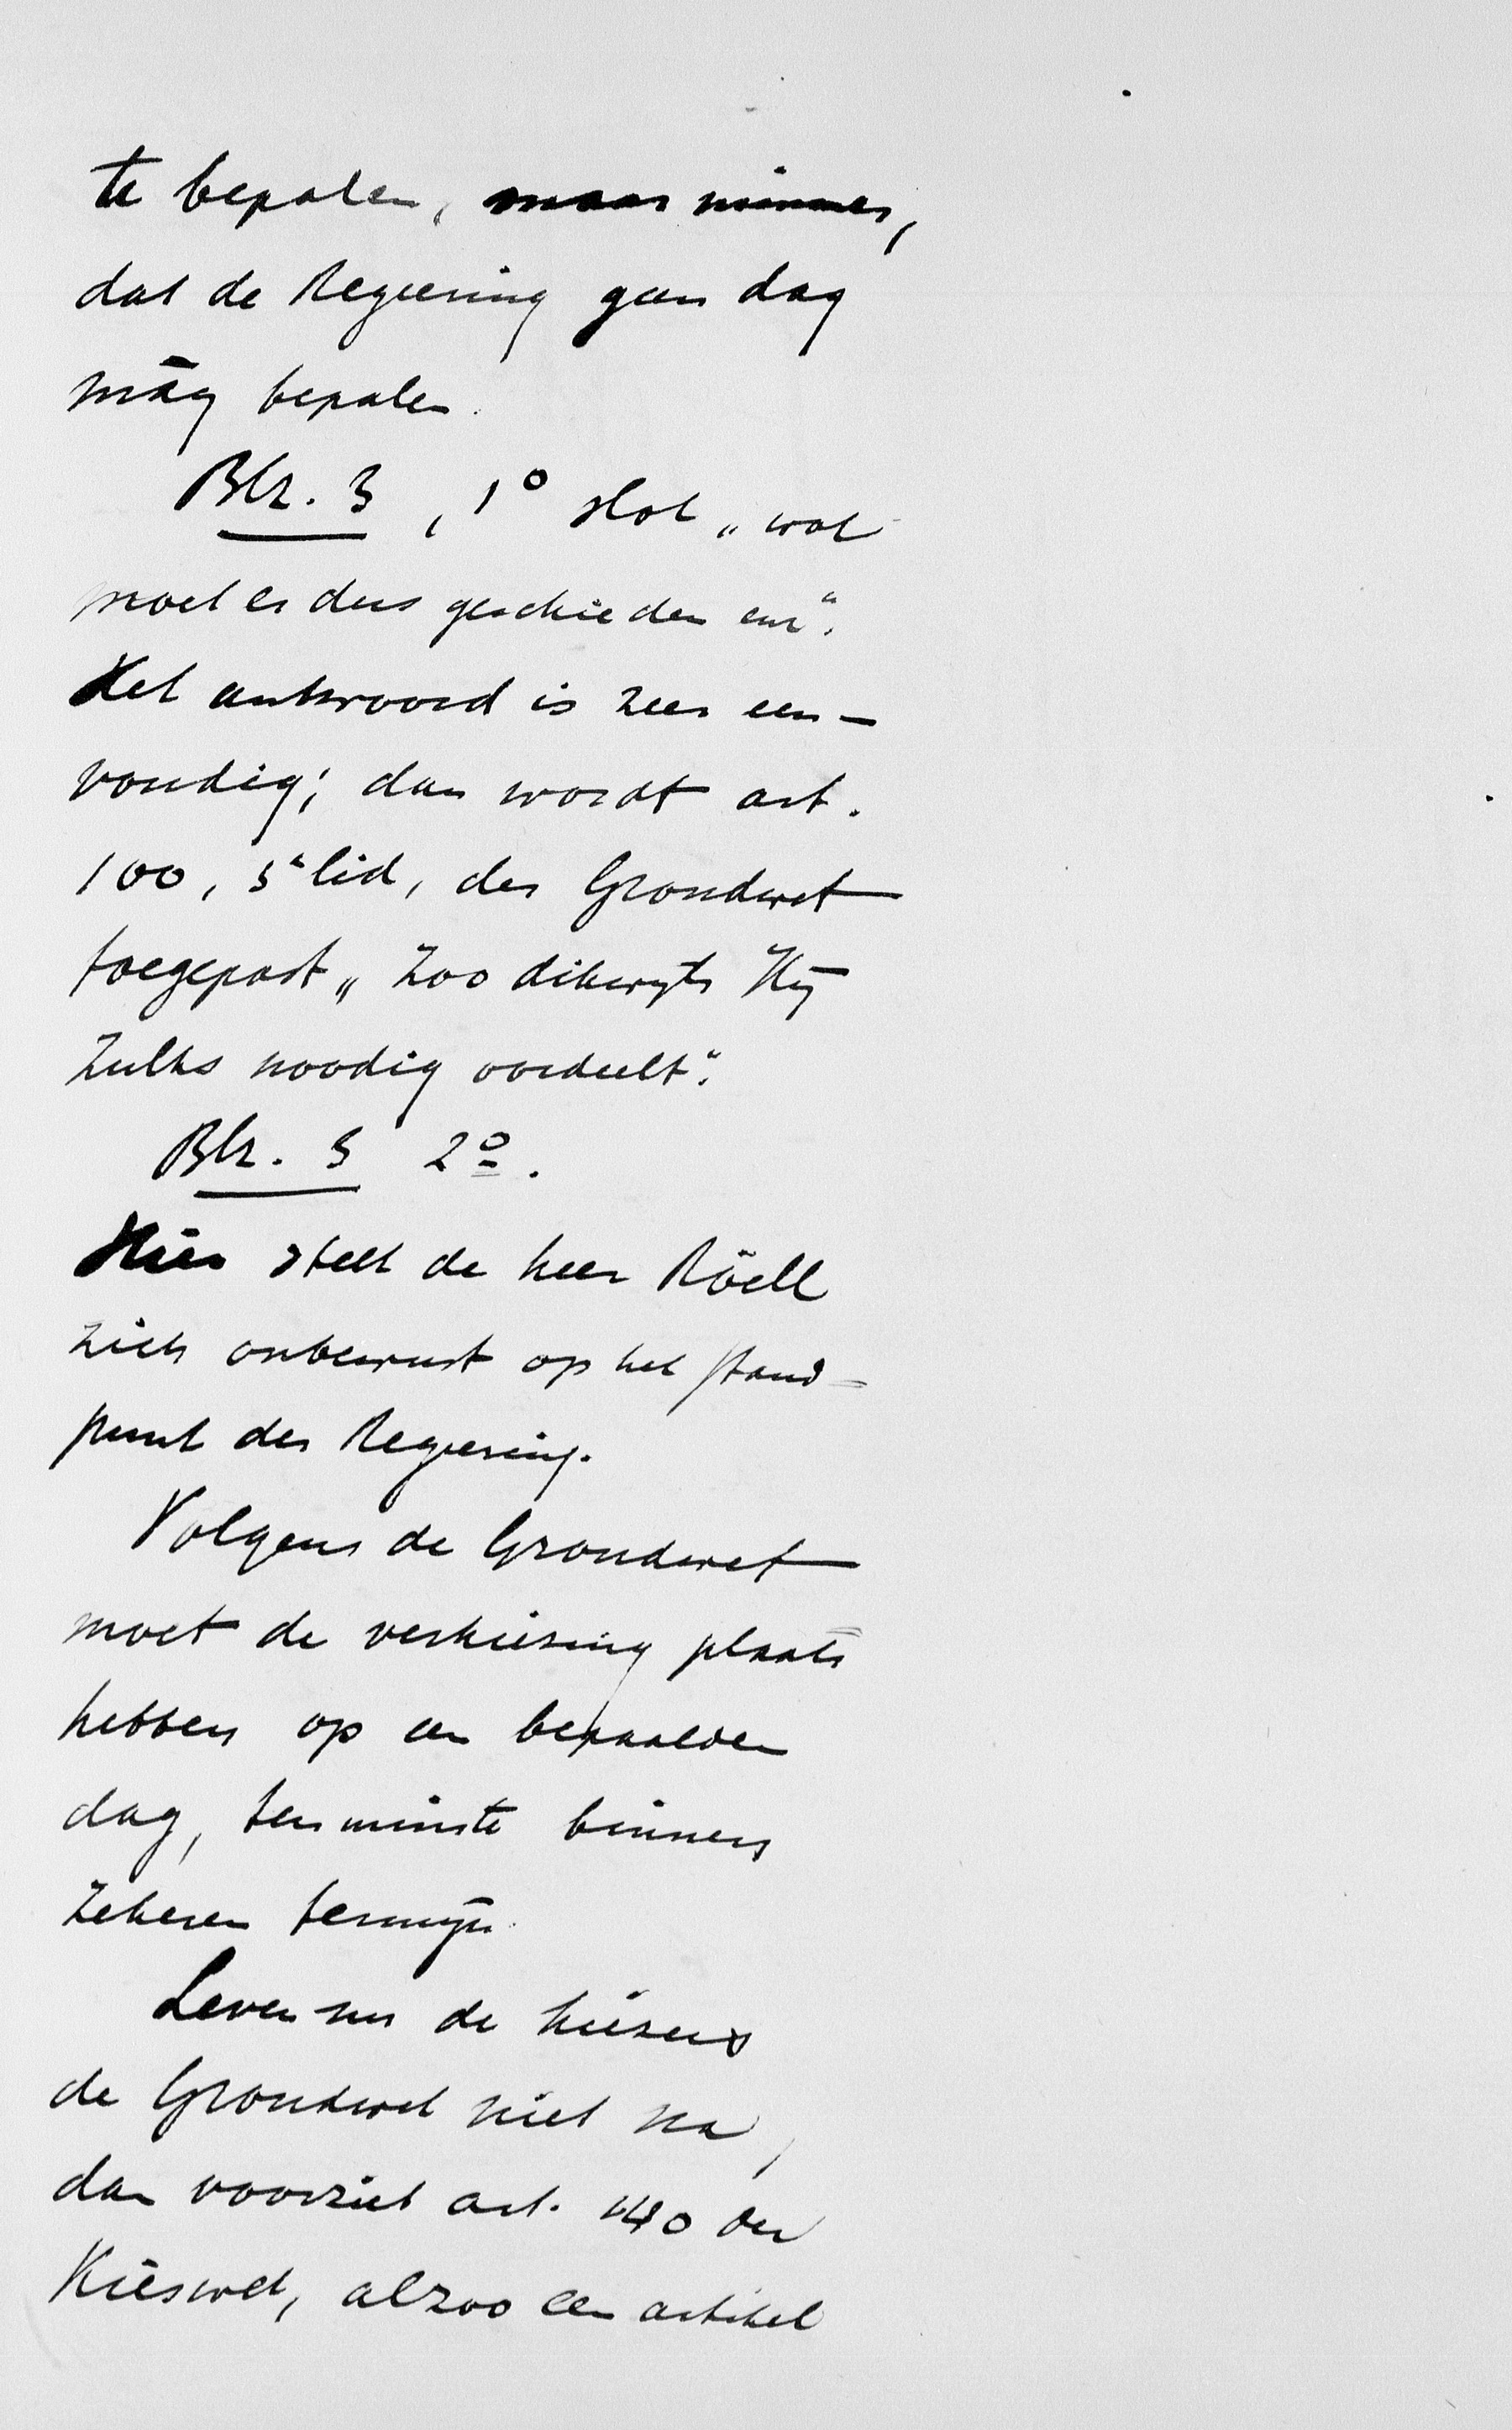 te bepalen, maar nimmer,
dat de Regeering geen dag
mág bepalen.
Blz. 3, 1o slot „wat
moet er dus geschieden enz".
Het antwoord is zeer een-
voudig; dan wordt art.
100, 3e lid, der Grondwet
toegepast „Zoo dikwijls Hij
zulks noodig oordeelt".
Blz. 3 2o.
Hier stelt de heer Röell
zich onbewust op het stand=
punt der Regeering.
Volgens de Grondwet
moet de verkiezing plaats
hebben op een bepaalden
dag, ten minste binnen
zekeren termijn.
Leven nu de kiezers
de Grondwet niet na,
dan voorziet art. 140 der
Kieswet, alzoo een artikel